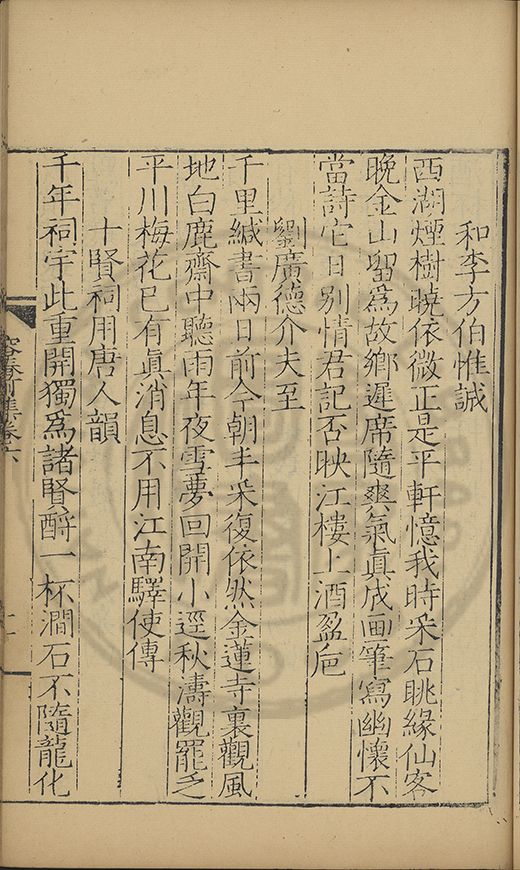 和李方伯惟誠
西湖煙樹曉依微正是平軒憶我時采石眺緣仙客
晚金山留爲故鄉遲席隨爽氣眞成画筆寫幽懷不
當詩它日别情君記否映江樓上酒盈巵
劉廣德介夫至
千里緘書兩日前今朝丰采復依然金蓮寺裏觀風
地白鹿齋中聽雨年夜雪夢回開小逕秋濤觀罷乏
平川梅花已有眞消息不用江南驛使傳
十賢祠用唐人韻
千年祠宇此重開獨爲諸賢酹一杯澗石不隨龍化
容春 集卷六
二